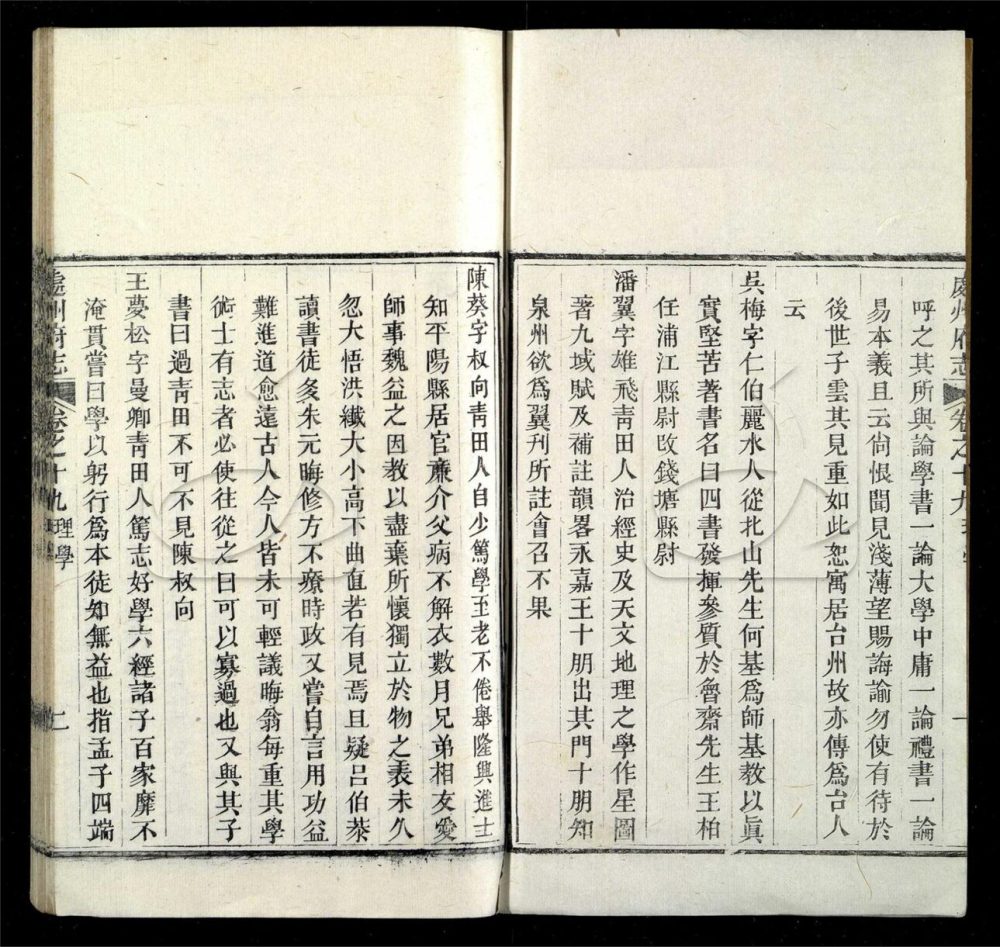 處州府志 卷之十九 理學 一
呼之其所與論學書一論大學中庸一論禮書一論
易本義且云尙恨聞見淺薄望賜誨諭勿使有待於
後世子雲其見重如此恕寓居台州故亦傳爲台人
云
吳梅字仁伯麗水人從北山先生何基爲師基教以眞
實堅苦著書名曰四書發揮參質於魯齋先生王柏
任浦江縣尉改錢塘縣尉
潘翼字雄飛靑田人治經史及天文地理之學作星圖
著九域賦及補註韻畧永嘉王十朋出其門十朋知
泉州欲爲翼刊所註會召不果
陳葵字叔向靑田人自少篤學至老不倦舉隆興進士
知平陽縣居官廉介父病不解衣數月兄弟相友愛
師事魏益之因教以盡棄所懷獨立於物之表未久
忽大悟洪纖大小高下曲直若有見焉且疑呂伯恭
讀書徒多朱元晦修方不療時政又嘗自言用功益
難進道愈遠古人今人皆未可輕議晦翁每重其學
術士有志者必使往從之曰可以寡過也又與其子
書曰過靑田不可不見陳叔向
王夢松字曼卿靑田人篤志好學六經諸子百家靡不
淹貫嘗曰學以躬行爲本徒知無益也指孟子四端
處州府志 卷之十九 理學 二